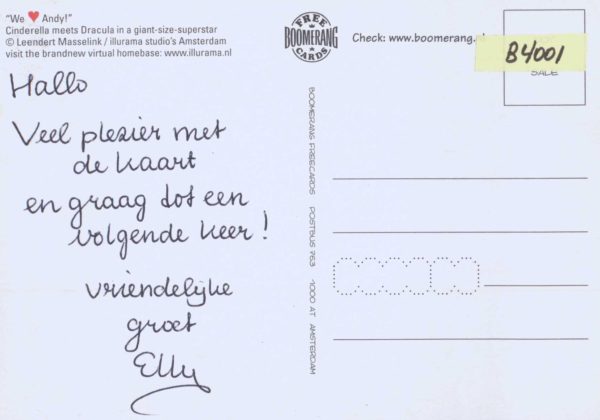 "We ♥ Andy!"
Cinderella meets Dracula in a giant-size-superstar
© Leendert Masselink / illurama studio's Amsterdam
visit the brandnew virtual homebase: www.illurama.nl
FREE
BOOMERANG
CARDS
Check: www.boomerang.nl
B4001
SALE
Hallo
Veel plezier met
de kaart
en graag tot een
volgende keer!
vriendelijke
groet
Elly
BOOMERANG FREECARDS POSTBUS 763 1000 AT AMSTERDAM